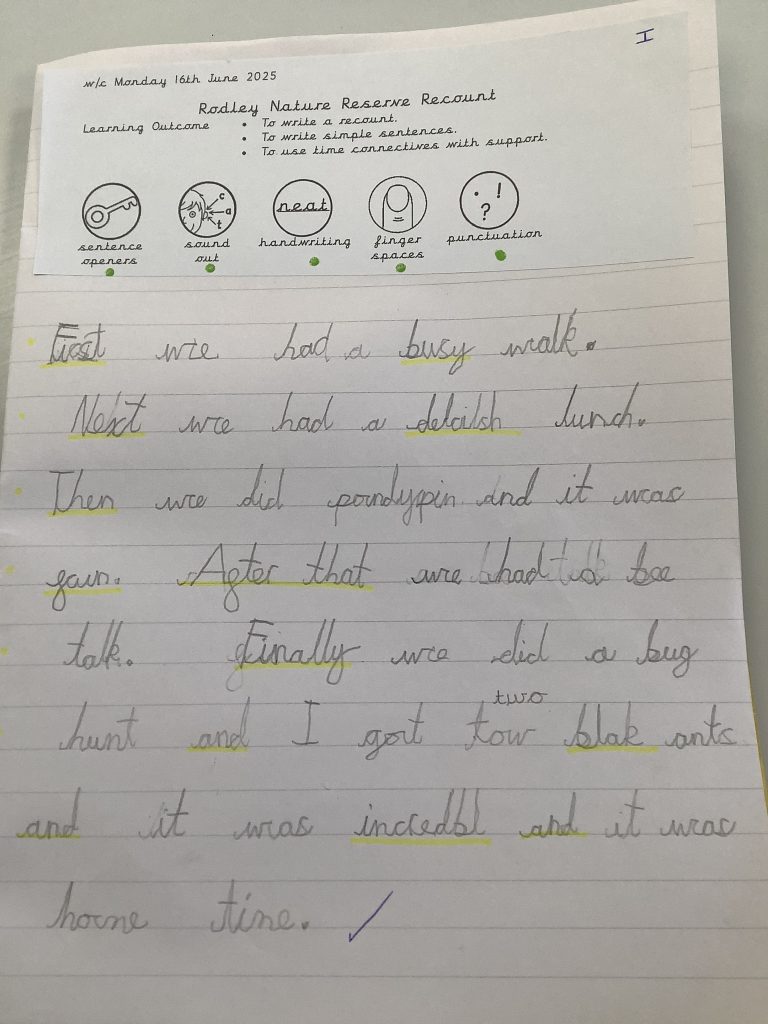 I
w/c Monday 16th June 2025
Rodley Nature Reserve Recount
Learning Outcome • To write a recount.
• To write simple sentences.
• To use time connectives with support.
c
a
t
neat
. !
?
sentence openers
sound out
handwriting
finger spaces
punctuation
First we had a busy walk.
Next we had a delcish lunch.
Then we did pondypin and it was
fun. After that we had a bee
talk. Finally we did a bug
two
hunt and I got tow blak ants
and it was incredbl and it was
home time.